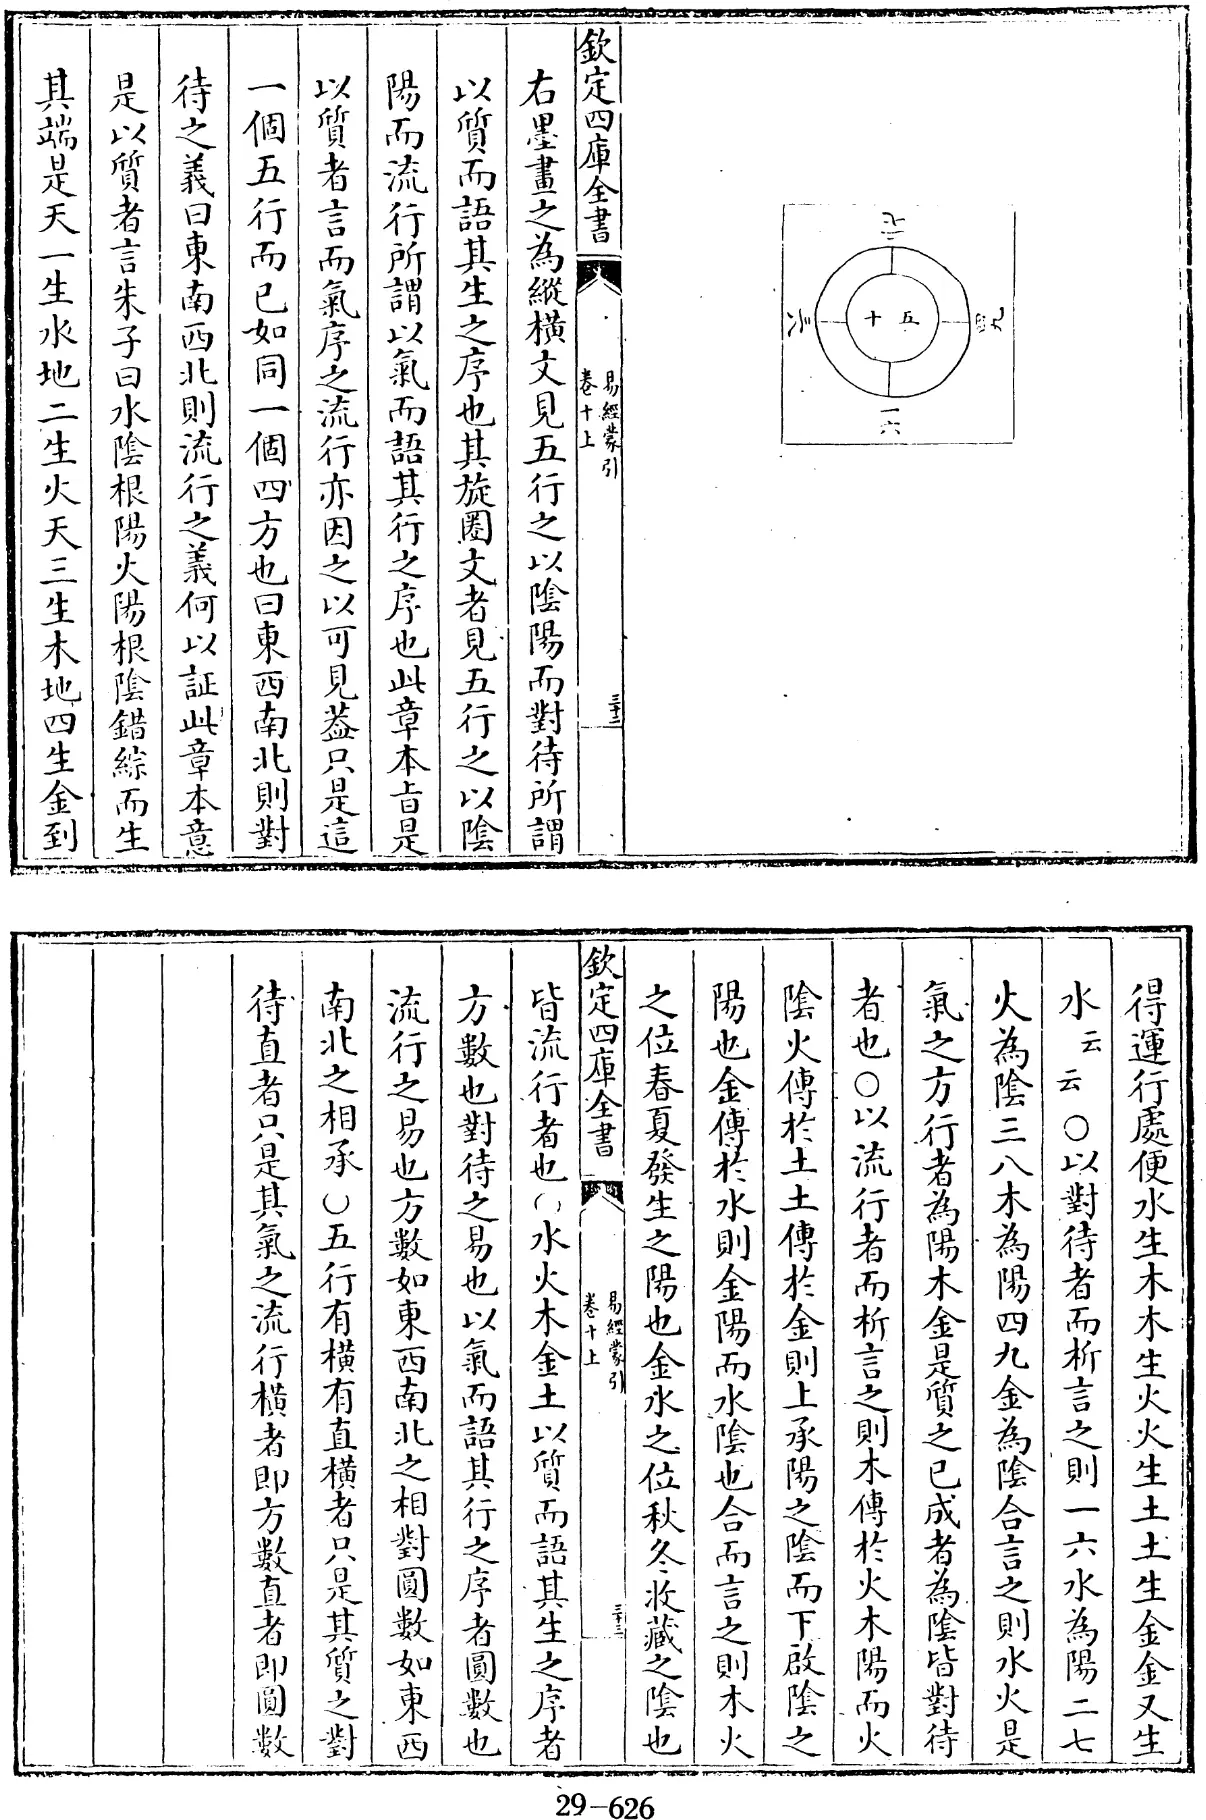 二七
三八
五
十
四九
一六
欽定四庫全書
易經蒙引
卷十上
三十二
右墨畫之為縱橫文見五行之以陰陽而對待所謂
以質而語其生之序也其旋圈文者見五行之以陰
陽而流行所謂以氣而語其行之序也此章本旨是
以質者言而氣序之流行亦因之以可見葢只是這
一個五行而已如同一個四方也曰東西南北則對
待之義曰東南西北則流行之義何以証此章本意
是以質者言朱子曰水陰根陽火陽根陰錯綜而生
其端是天一生水地二生火天三生木地四生金到
得運行處便水生木木生火火生土土生金金又生
水云云○以對待者而析言之則一六水為陽二七
火為陰三八木為陽四九金為陰合言之則水火是
氣之方行者為陽木金是質之已成者為陰皆對待
者也○以流行者而析言之則木傳於火木陽而火
陰火傳於土土傳於金則上承陽之陰而下啟陰之
陽也金傳於水則金陽而水陰也合而言之則木火
之位春夏發生之陽也金水之位秋冬收藏之陰也
欽定四庫全書
易經蒙引
卷十上
三十三
皆流行者也○水火木金土以質而語其生之序者
方數也對待之易也以氣而語其行之序者圓數也
流行之易也方數如東西南北之相對圓數如東西
南北之相承○五行有橫有直橫者只是其質之對
待直者只是其氣之流行橫者即方數直者即圓數
29-626